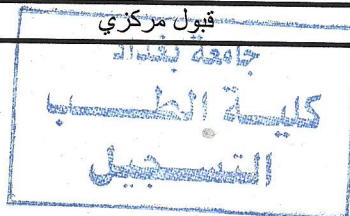 قبول مركزي
جامعة بغداد
كلية الطب
التسجيل